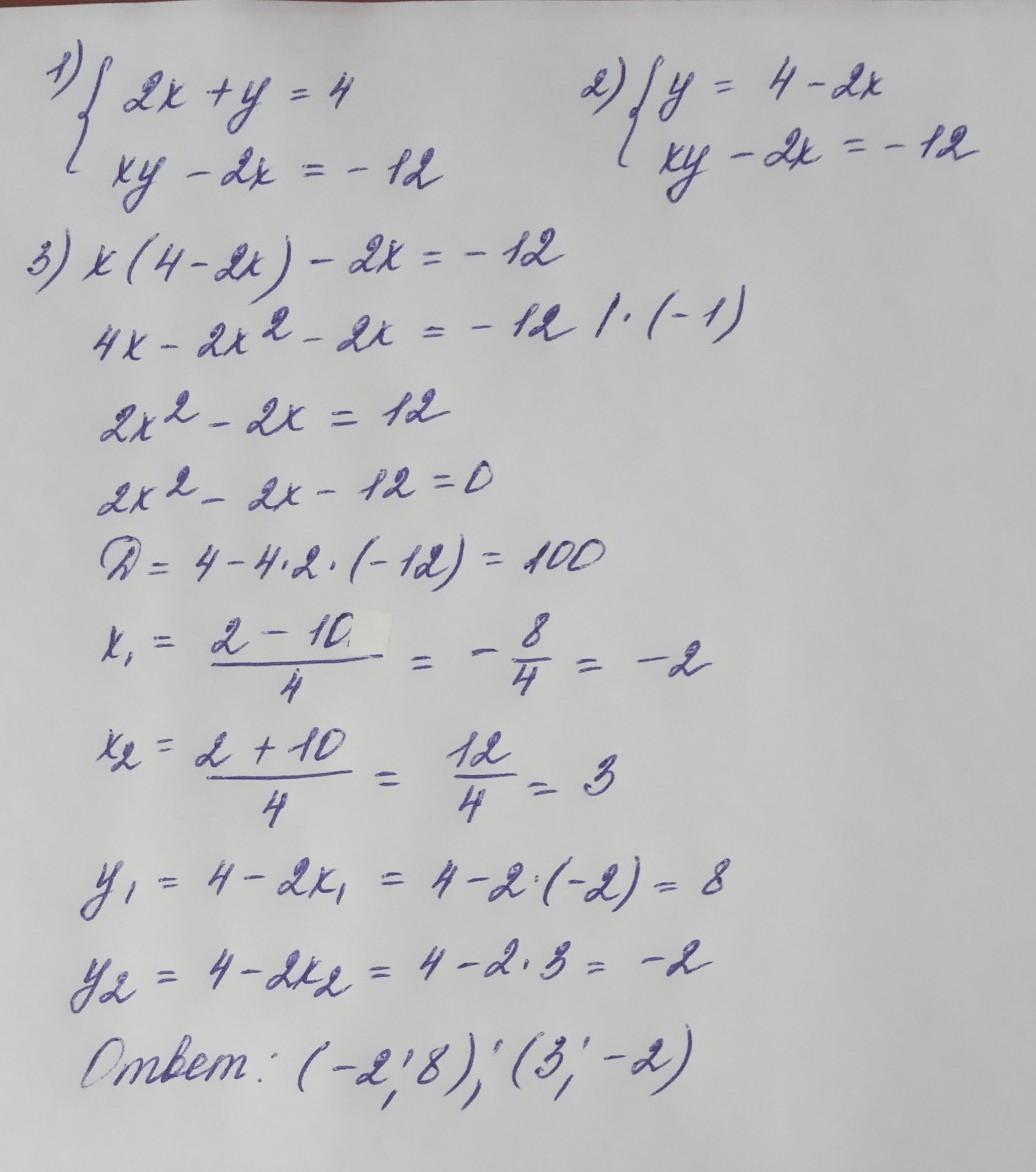 1) { 2x + y = 4
xy - 2x = - 12
2) { y = 4 - 2x
xy - 2x = - 12
3) x(4 - 2x) - 2x = - 12
4x - 2x² - 2x = - 12 | · (-1)
2x² - 2x = 12
2x² - 2x - 12 = 0
D = 4 - 4·2·(-12) = 100
x₁ = (2 - 10)/4 = - 8/4 = - 2
x₂ = (2 + 10)/4 = 12/4 = 3
y₁ = 4 - 2x₁ = 4 - 2·(-2) = 8
y₂ = 4 - 2x₂ = 4 - 2·3 = - 2
Ответ: (-2; 8); (3; -2)